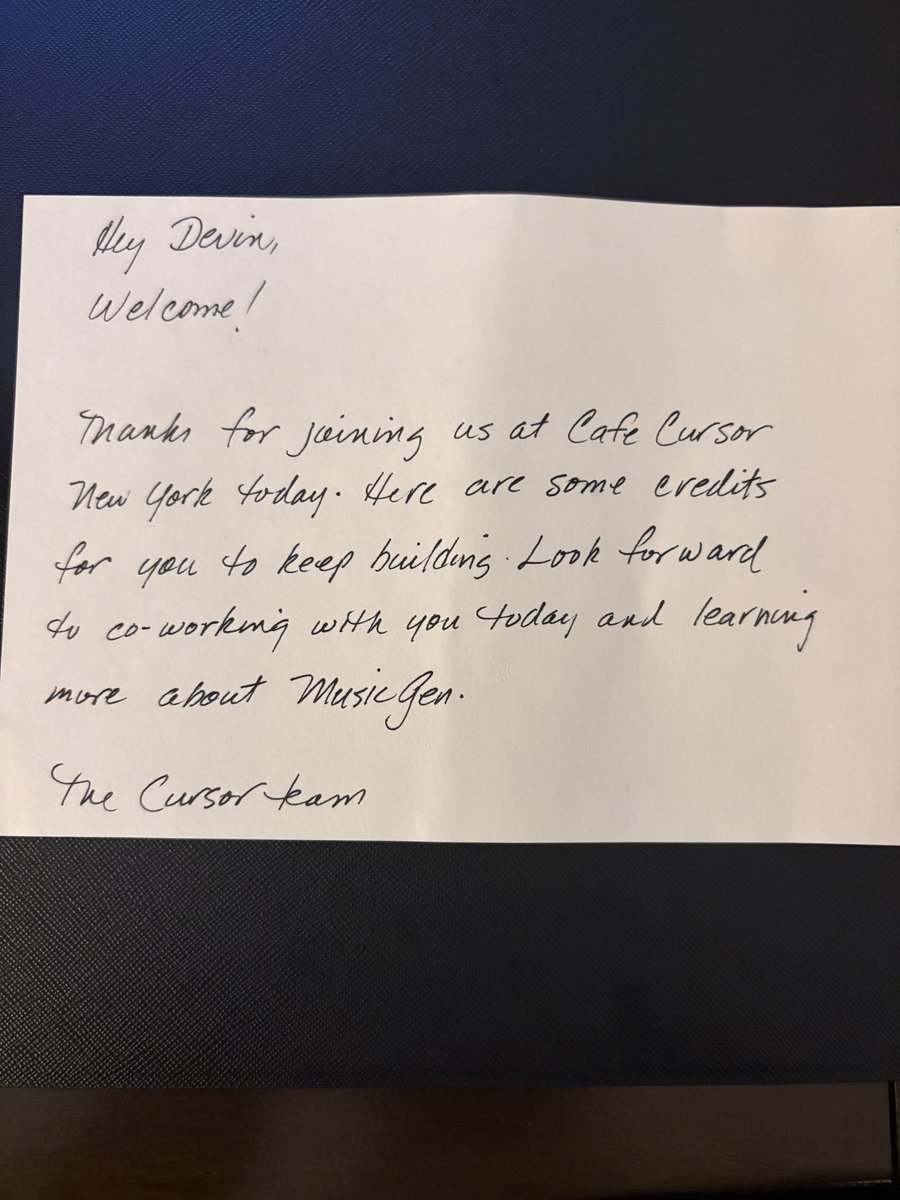 Hey Devin,
Welcome!
Thanks for joining us at Cafe Cursor
New York today. Here are some credits
for you to keep building. Look forward
to co-working with you today and learning
more about MusicGen.
The Cursor team